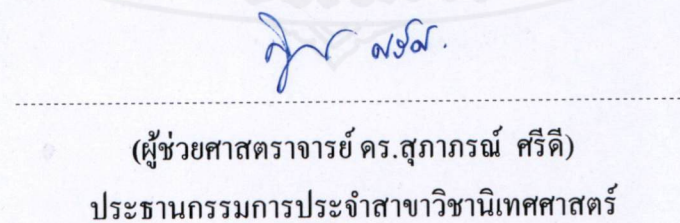 (ผู้ช่วยศาสตราจารย์ ดร.สุภาภรณ์ ศรีดี)
ประธานกรรมการประจำสาขาวิชานิเทศศาสตร์